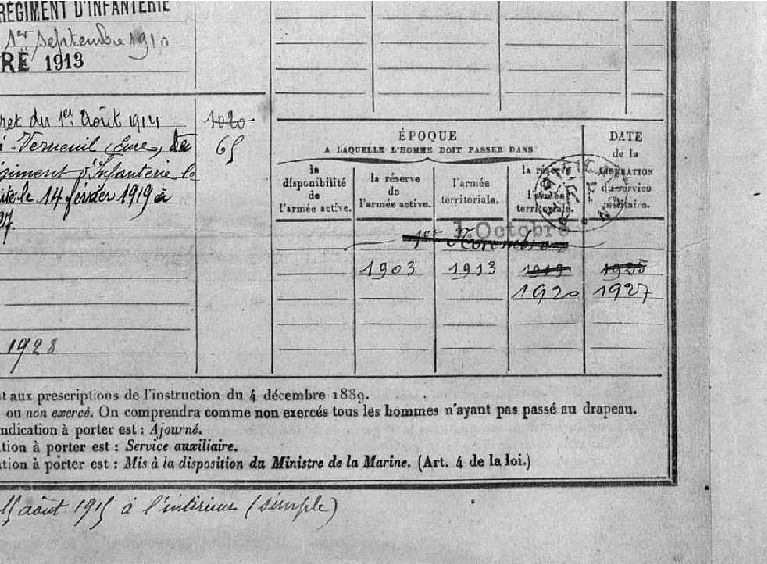 RÉGIMENT D'INFANTERIE
1er Septembre 1910
RE 1913
ret du 1er Août 1914
1020
à Verneuil (Eure)
65
d'Infanterie le
le 14 février 1919 à
1928
ÉPOQUE
A LAQUELLE L'HOMME DOIT PASSER DANS
DATE
de la
LIBÉRATION
du service
militaire.
la
disponibilité
de
l'armée active.
la réserve
de
l'armée active.
l'armée
territoriale.
la réserve
de
l'armée
territoriale.
RF
1. Octobre
1er Novembre
1903 1913 1919 1925
1920 1927
t aux prescriptions de l'instruction du 4 décembre 1889.
ou non exercé. On comprendra comme non exercés tous les hommes n'ayant pas passé au drapeau.
indication à porter est : Ajourné.
tion à porter est : Service auxiliaire.
tion à porter est : Mis à la disposition du Ministre de la Marine. (Art. 4 de la loi.)
août 1915 à l'intérieur (simple)